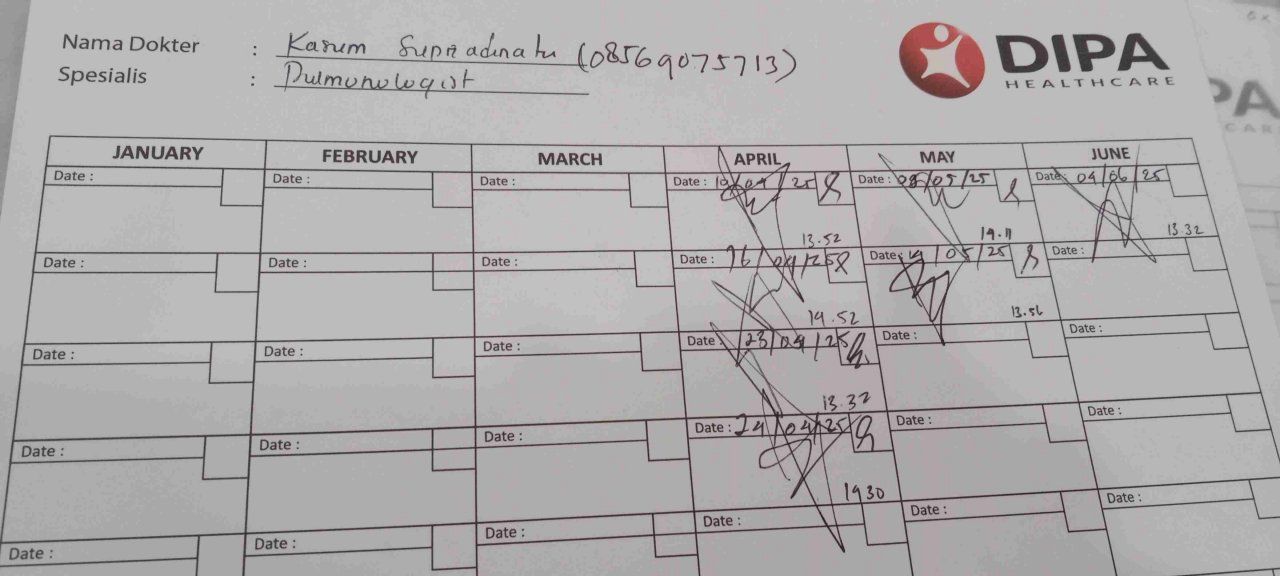 Nama Dokter : Karum Supriadinata (08569075713)
Spesialis : Pulmonologist
DIPA
HEALTHCARE
JANUARY FEBRUARY MARCH APRIL MAY JUNE
Date : Date : Date : Date : 10/04/25 Date : 05/25 Date : 04/06/25
13.52 14.11 13.32
Date : Date : Date : Date : 16/04/25 Date : 14/05/25 Date :
14.52 13.56
Date : Date : Date : Date : 23/04/25 Date : Date :
13.32
Date : Date : Date : Date : 24/04/25 Date : Date :
1930
Date : Date : Date : Date : Date : Date :